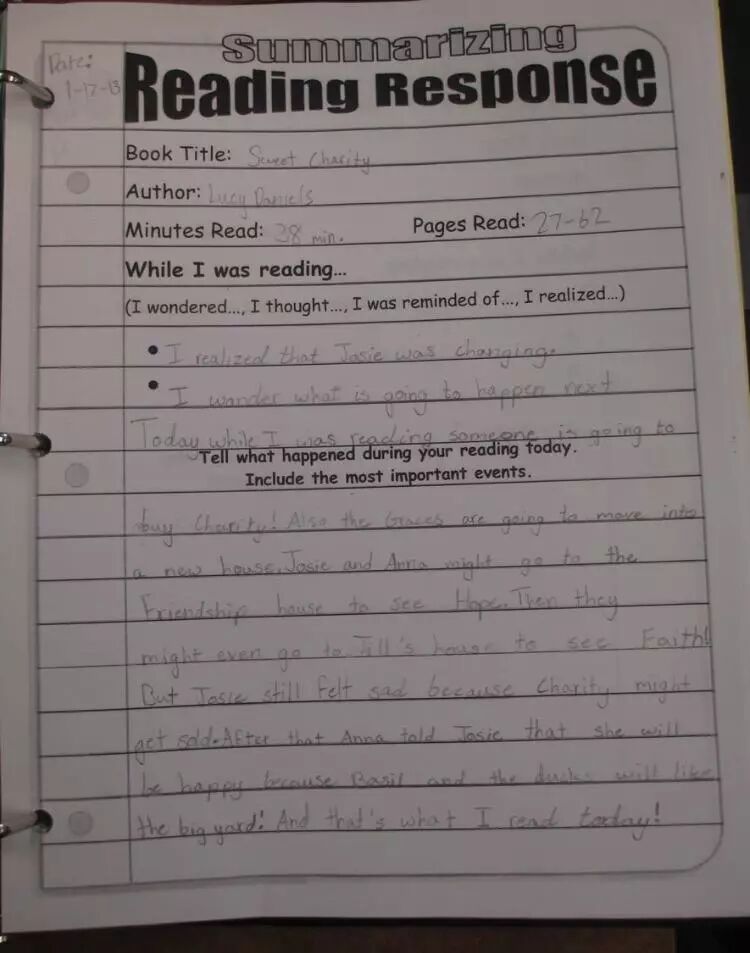 Summarizing
Date:
1-17-13
Reading Response
Book Title: Sweet Charity
Author: Lucy Daniels
Minutes Read: 38 min. Pages Read: 27-62
While I was reading...
(I wondered..., I thought..., I was reminded of..., I realized...)
• I realized that Josie was changing.
• I wander what is going to happen next
Today while I was reading someone is going to
Tell what happened during your reading today.
Include the most important events.
buy Charity! Also the Graces are going to move into
a new house. Josie and Anna might go to the
Friendship house to see Hope. Then they
might even go to Jill's house to see Faith!
But Josie still felt sad because Charity might
get sold. After that Anna told Josie that she will
be happy because Basil and the ducks will like
the big yard! And that's what I read today!